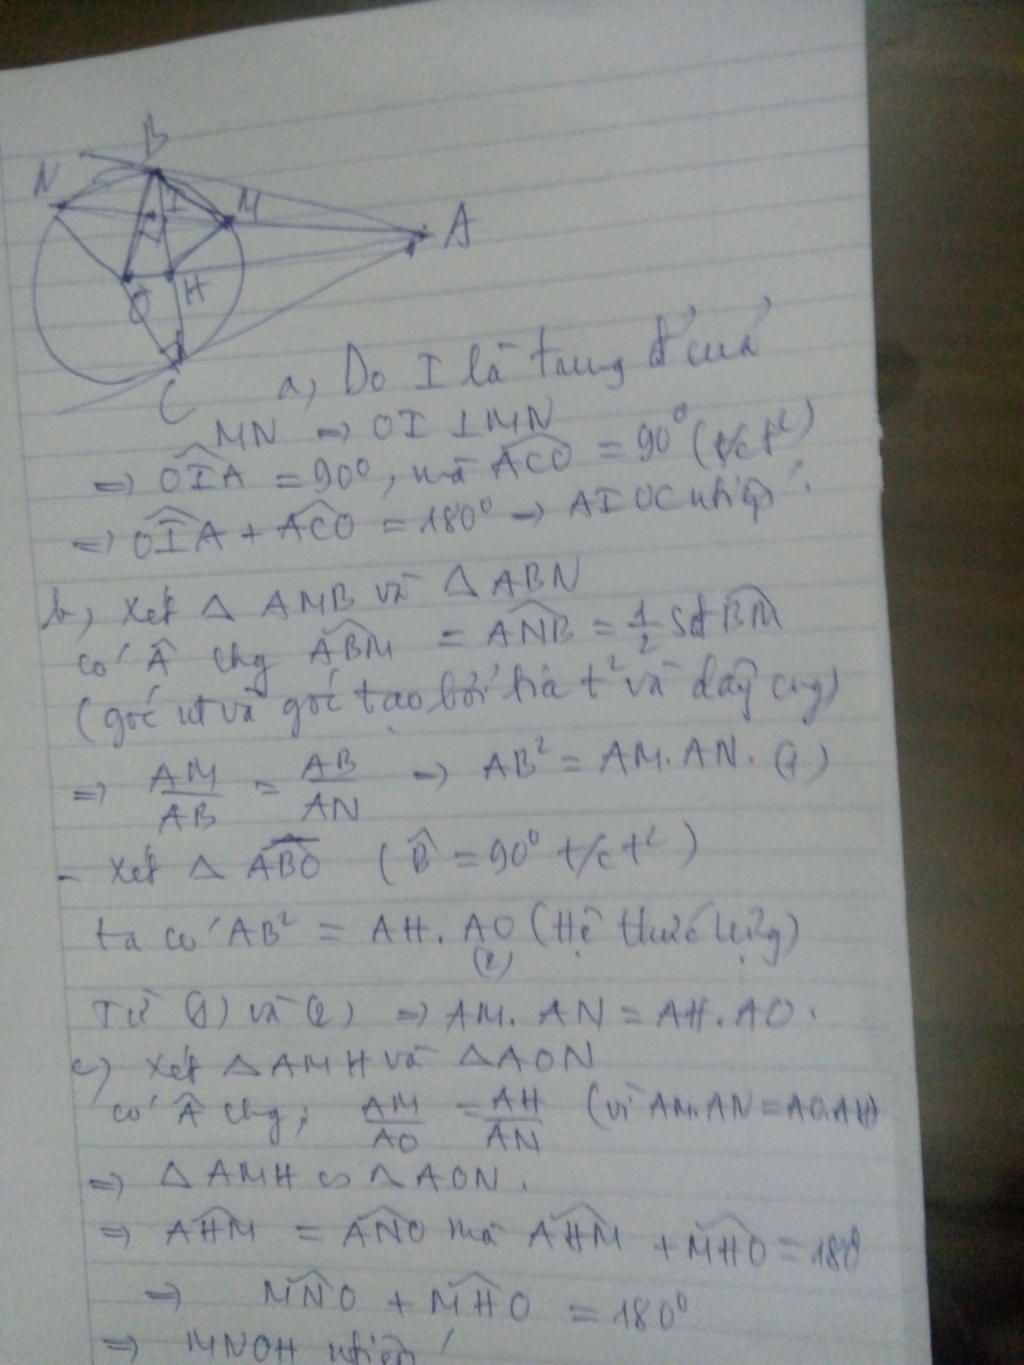 B
N
I
M
A
O
H
C
a, Do I là trung đ' của
MN => OI ⊥ MN
=> OIA = 90°, mà ACO = 90° (t/c t²)
=> OIA + ACO = 180° -> AIOC ntiếp.
b, Xét △ AMB và △ ABN
có Â chg ABM = ANB = 1/2 sđ BM
(góc nt và góc tạo bởi tia t² và dây cug)
=> AM/AB = AB/AN => AB² = AM. AN. (1)
- Xét △ ABO (B̂ = 90° t/c t²)
ta có AB² = AH. AO (Hệ thức lượng)
(2)
Từ (1) và (2) => AM. AN = AH. AO.
c) Xét △AMH và △AON
có Â chg; AM/AO = AH/AN (vì AM.AN = AO.AH)
=> △ AMH ∽ △AON.
=> AHM = ANO mà AHM + MHO = 180
=> MNO + MHO = 180°
=> MNOH ntiếp